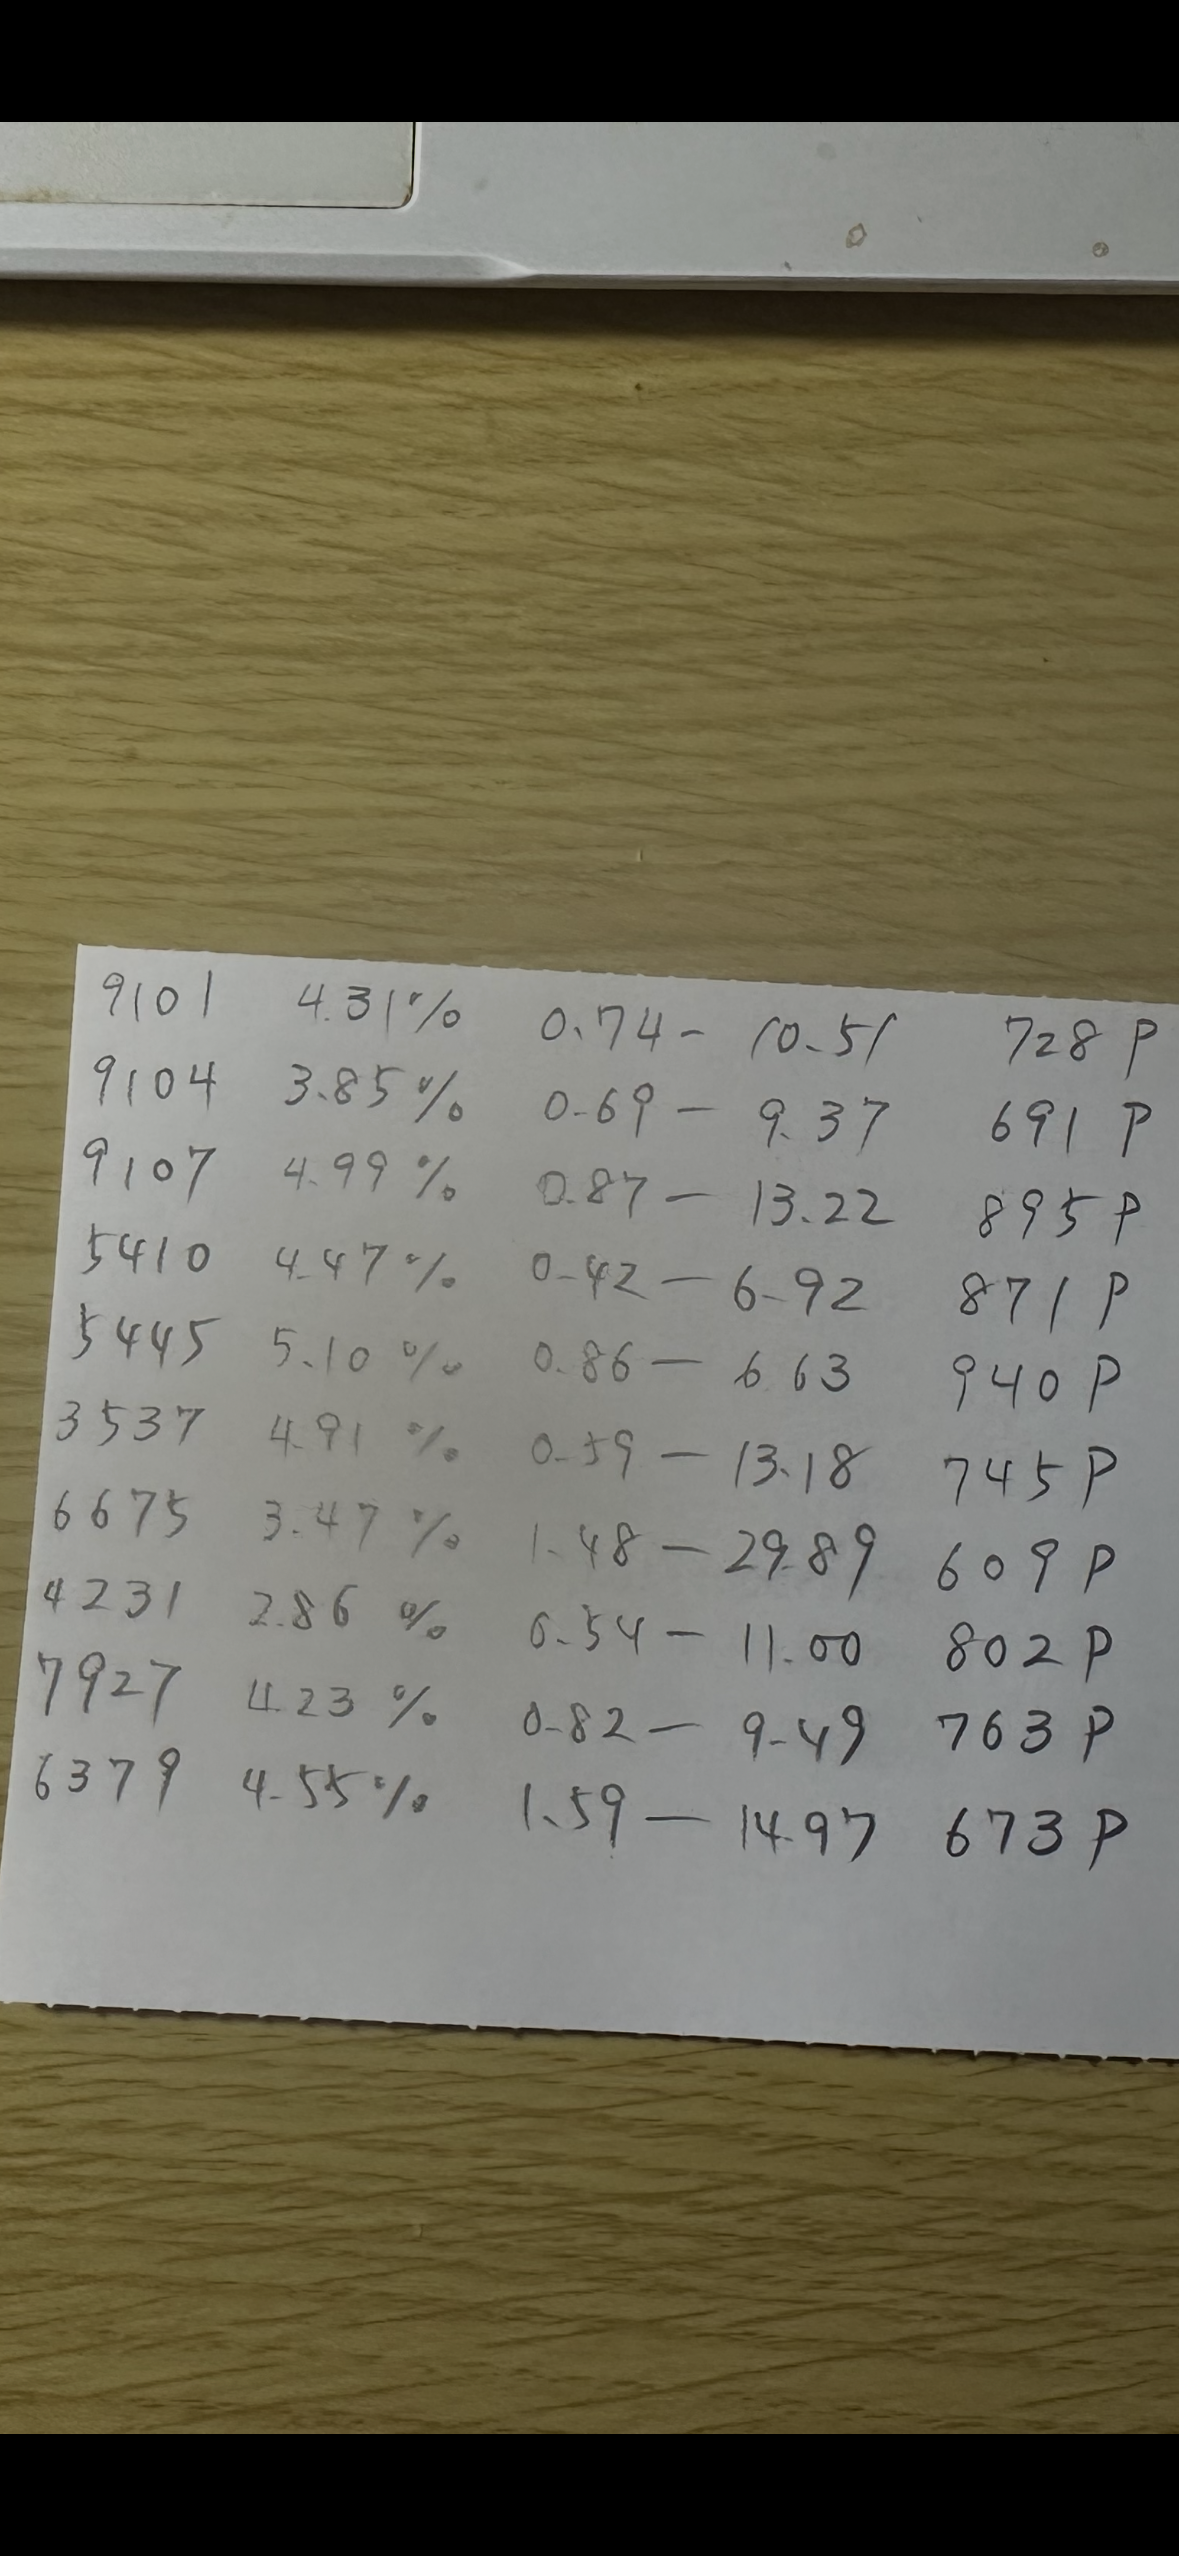 9101 4.31% 0.74 - 10.51 728 P
9104 3.85% 0.69 - 9.37 691 P
9107 4.99% 0.87 - 13.22 895 P
5410 4.47% 0.42 - 6.92 871 P
5445 5.10% 0.86 - 6.63 940 P
3537 4.91% 0.59 - 13.18 745 P
6675 3.47% 1.48 - 29.89 609 P
4231 2.86% 0.54 - 11.00 802 P
7927 4.23% 0.82 - 9.49 763 P
6379 4.55% 1.59 - 14.97 673 P